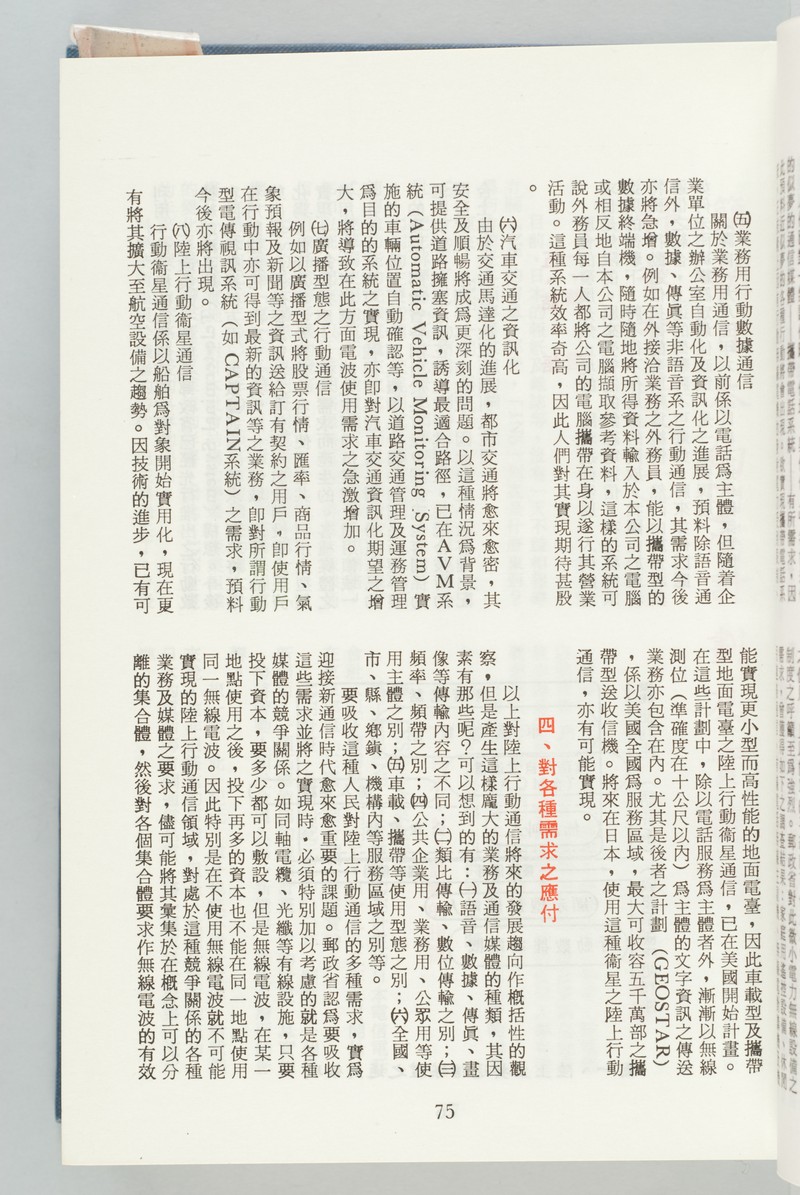 ㈤業務用行動數據通信
關於業務用通信，以前係以電話爲主體，但隨着企
業單位之辦公室自動化及資訊化之進展，預料除語音通
信外，數據、傳眞等非語音系之行動通信，其需求今後
亦將急增。例如在外接洽業務之外務員，能以攜帶型的
數據終端機，隨時隨地將所得資料輸入於本公司之電腦
或相反地自本公司之電腦擷取參考資料，這樣的系統可
說外務員每一人都將公司的電腦攜帶在身以遂行其營業
活動。這種系統效率奇高，因此人們對其實現期待甚殷
。
㈥汽車交通之資訊化
由於交通馬達化的進展，都市交通將愈來愈密，其
安全及順暢將成爲更深刻的問題。以這種情況爲背景，
可提供道路擁塞資訊，誘導最適合路徑，已在AVM系
統（Automatic Vehicle Monitoring System）實
施的車輛位置自動確認等，以道路交通管理及運務管理
爲目的的系統之實現，亦卽對汽車交通資訊化期望之增
大，將導致在此方面電波使用需求之急激增加。
㈦廣播型態之行動通信
例如以廣播型式將股票行情、匯率、商品行情、氣
象預報及新聞等之資訊送給訂有契約之用戶，卽使用戶
在行動中亦可得到最新的資訊等之業務，卽對所謂行動
型電傳視訊系統（如CAPTAIN系統）之需求，預料
今後亦將出現。
㈧陸上行動衞星通信
行動衞星通信係以船舶爲對象開始實用化，現在更
有將其擴大至航空設備之趨勢。因技術的進步，已有可
能實現更小型而高性能的地面電臺，因此車載型及攜帶
型地面電臺之陸上行動衞星通信，已在美國開始計畫。
在這些計劃中，除以電話服務爲主體者外，漸漸以無線
測位（準確度在十公尺以內）爲主體的文字資訊之傳送
業務亦包含在內。尤其是後者之計劃（GEOSTAR）
，係以美國全國爲服務區域，最大可收容五千萬部之攜
帶型送收信機。將來在日本，使用這種衞星之陸上行動
通信，亦有可能實現。
四、對各種需求之應付
以上對陸上行動通信將來的發展趨向作槪括性的觀
察，但是產生這樣龐大的業務及通信媒體的種類，其因
素有那些呢？可以想到的有：㈠語音、數據、傳眞、畫
像等傳輸內容之不同；㈡類比傳輸、數位傳輸之別；㈢
頻率、頻帶之別；㈣公共企業用、業務用、公眾用等使
用主體之別；㈤車載、攜帶等使用型態之別；㈥全國、
市、縣、鄉鎭、機構內等服務區域之別等。
要吸收這種人民對陸上行動通信的多種需求，實爲
迎接新通信時代愈來愈重要的課題。郵政省認爲要吸收
這些需求並將之實現時，必須特別加以考慮的就是各種
媒體的競爭關係。如同軸電纜、光纖等有線設施，只要
投下資本，要多少都可以敷設，但是無線電波，在某一
地點使用之後，投下再多的資本也不能在同一地點使用
同一無線電波。因此特別是在不使用無線電波就不可能
實現的陸上行動通信領域，對處於這種競爭關係的各種
業務及媒體之要求，儘可能將其彙集於在槪念上可以分
離的集合體，然後對各個集合體要求作無線電波的有效
75